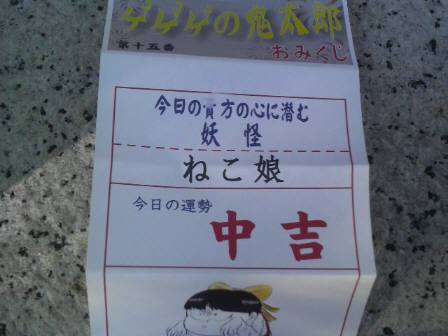 ゲゲゲの鬼太郎
第十五番
おみくじ
今日の貴方の心に潜む
妖怪
ねこ娘
今日の運勢
中吉